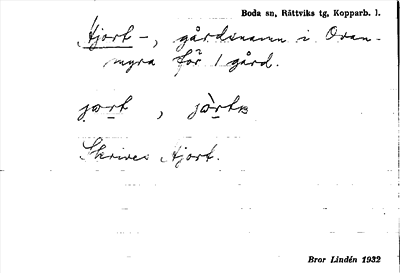 Boda sn, Rättviks tg, Kopparb. l.
Hjort-, gårdsnamn i Ovan-
myra för 1 gård.
jort, jòrts
Skrives Hjort.
Bror Lindén 1932